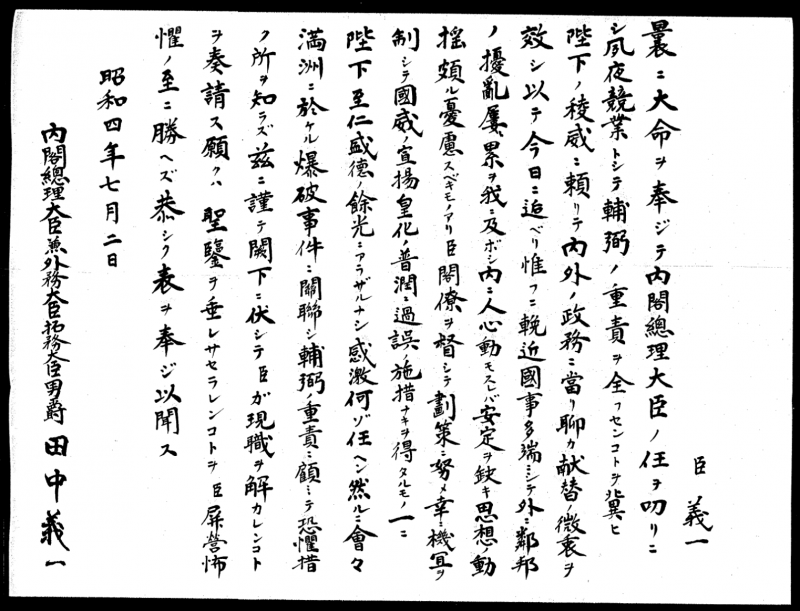 臣 義一
曩ニ大命ヲ奉ジテ內閣總理大臣ノ任ヲ叨リニ
シ夙夜競業トシテ輔弼ノ重責ヲ全フセンコトヲ冀ヒ
陛下ノ稜威ニ賴リテ內外ノ政務ニ當リ聊カ献替ノ微衷ヲ
效シ以テ今日ニ迨ベリ惟フニ輓近國事多端ニシテ外ニ鄰邦
ノ擾亂屢累ヲ我ニ及ボシ內ニ人心動モスレバ安定ヲ缺キ思想ノ動
搖頗ル憂慮スベキモノアリ臣閣僚ヲ督シテ劃策ニ努メ幸ニ機宜ヲ
制シテ國威ノ宣揚皇化ノ普潤ニ過誤ノ施措ナキヲ得タルモノ一ニ
陛下至仁盛德ノ餘光ニアラザルナシ感激何ゾ任ヘン然ルニ會々
滿洲ニ於ケル爆破事件ニ關聯シ輔弼ノ重責ニ顧ミテ恐懼措
ク所ヲ知ラズ茲ニ謹テ闕下ニ伏シテ臣ガ現職ヲ解カレンコト
ヲ奏請ス願クハ 聖鑒ヲ垂レサセラレンコトヲ臣屏營怖
懼ノ至ニ勝ヘズ恭シク表ヲ奉ジ以聞ス
昭和四年七月二日
內閣總理大臣兼外務大臣拓務大臣男爵 田中義一